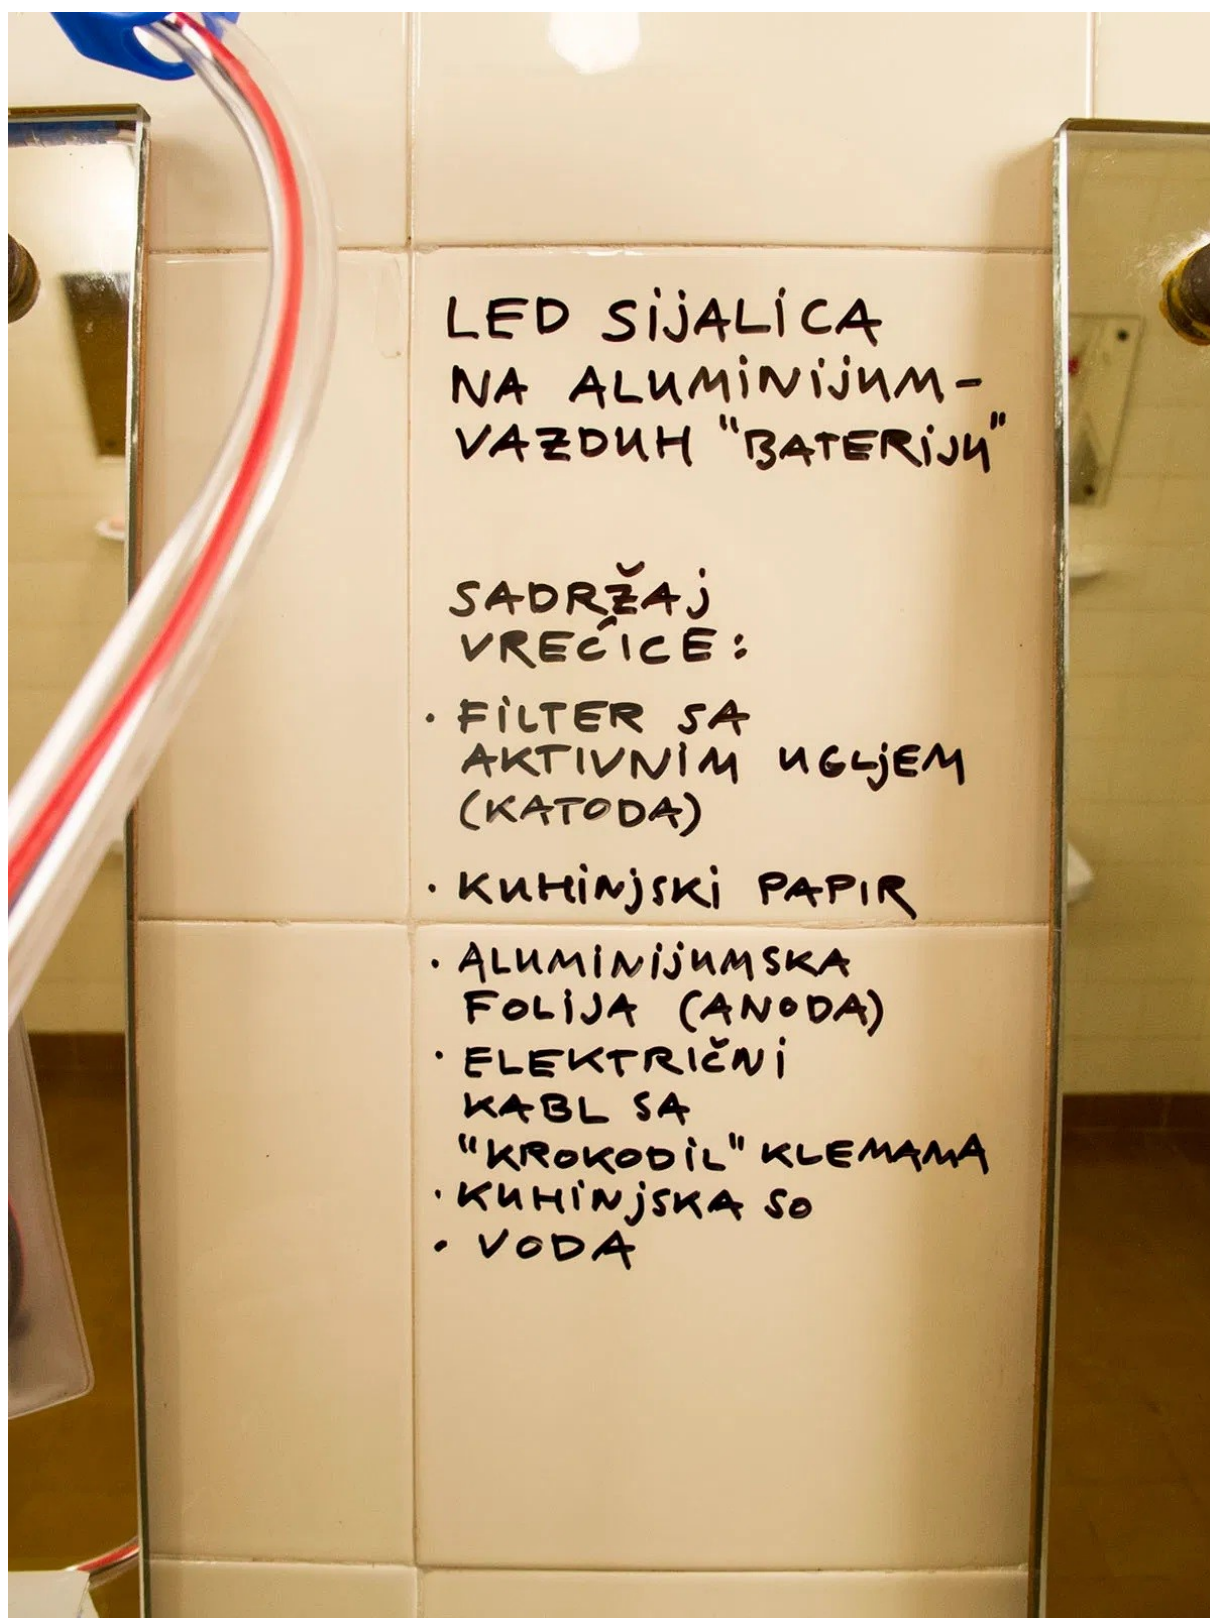 LED SIJALICA
NA ALUMINIJUM-
VAZDUH "BATERIJU"
SADRŽAJ
VREĆICE:
· FILTER SA
AKTIVNIM UGLJEM
(KATODA)
· KUHINJSKI PAPIR
· ALUMINIJUMSKA
FOLIJA (ANODA)
· ELEKTRIČNI
KABL SA
"KROKODIL" KLEMAMA
· KUHINJSKA SO
· VODA